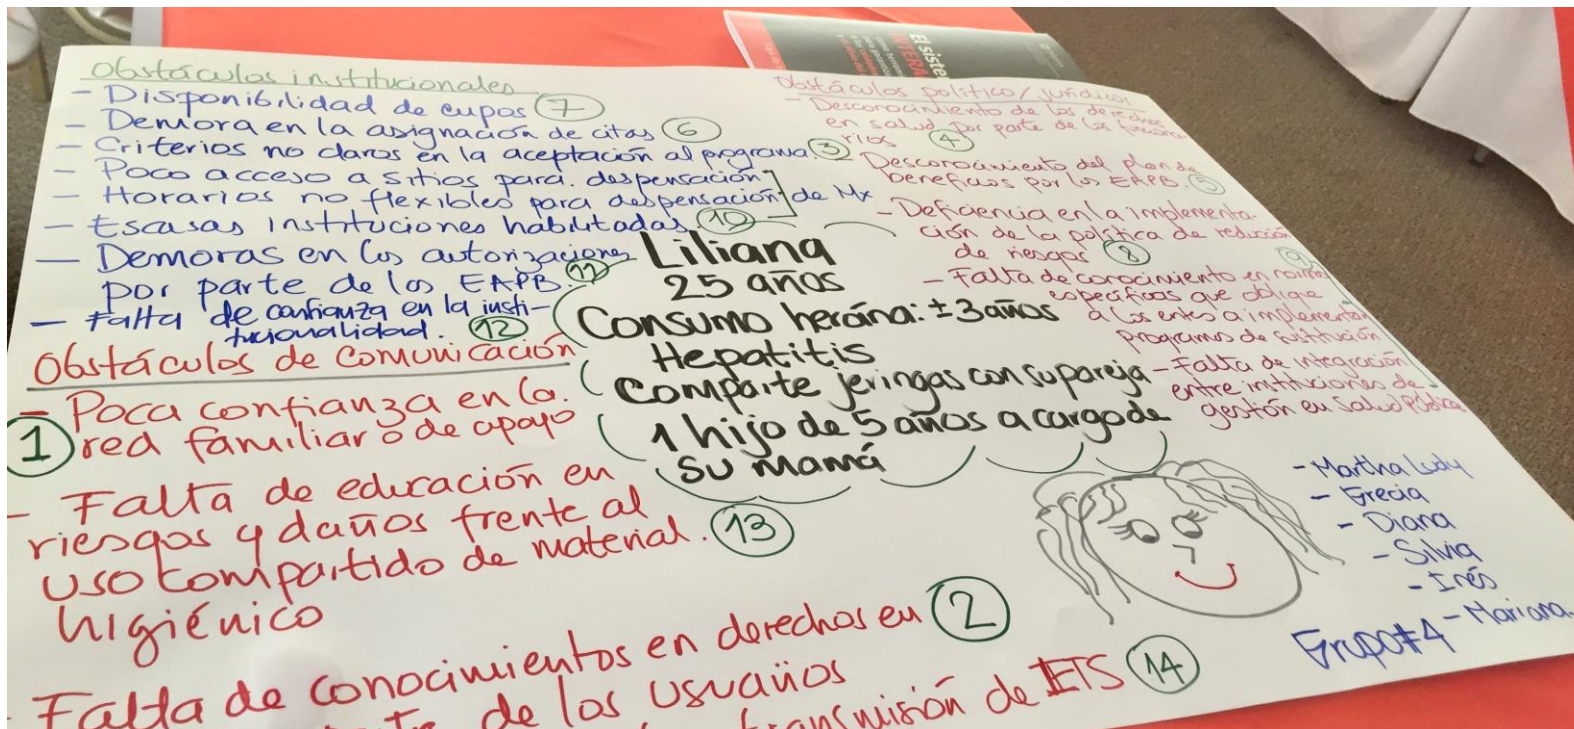 Obstáculos institucionales
- Disponibilidad de cupos 7
- Demora en la asignación de citas 6
- Criterios no claros en la aceptación al programa. 3
- Poco acceso a sitios para. despensación
- Horarios no flexibles para despensación de Mx
- Escasas instituciones habilitadas. 10
- Demoras en las autorizaciones
por parte de las EAPB. 11
- Falta de confianza en la insti-
tucionalidad. 12
Obstáculos de comunicación
- Poca confianza en la.
1 red familiar o de apoyo
- Falta de educación en
riesgos y daños frente al
uso compartido de material. 13
higiénico
- Falta de conocimientos en derechos en 2
de los usuarios
transmisión de IETS 14
Liliana
25 años
Consumo heroína: ±3 años
Hepatitis
Comparte jeringas con su pareja
1 hijo de 5 años a cargo de
su mamá
Obstáculos político/jurídicos
- Desconocimiento de los derechos
en salud por parte de los funciona
rios 4
Desconocimiento del plan de
beneficios por las EAPB. 5
- Deficiencia en la implementa-
ción de la política de reducción
de riesgos 8
9
- Falta de conocimiento en normas
específicas que oblige
a los entes a implementar
programas de sustitución
- Falta de integración
entre instituciones de
gestión en Salud Pública
- Martha Ludy
- Grecia
- Diana
- Silvia
- Inés
- Mariana.
Grupo #4
El siste
INTERA